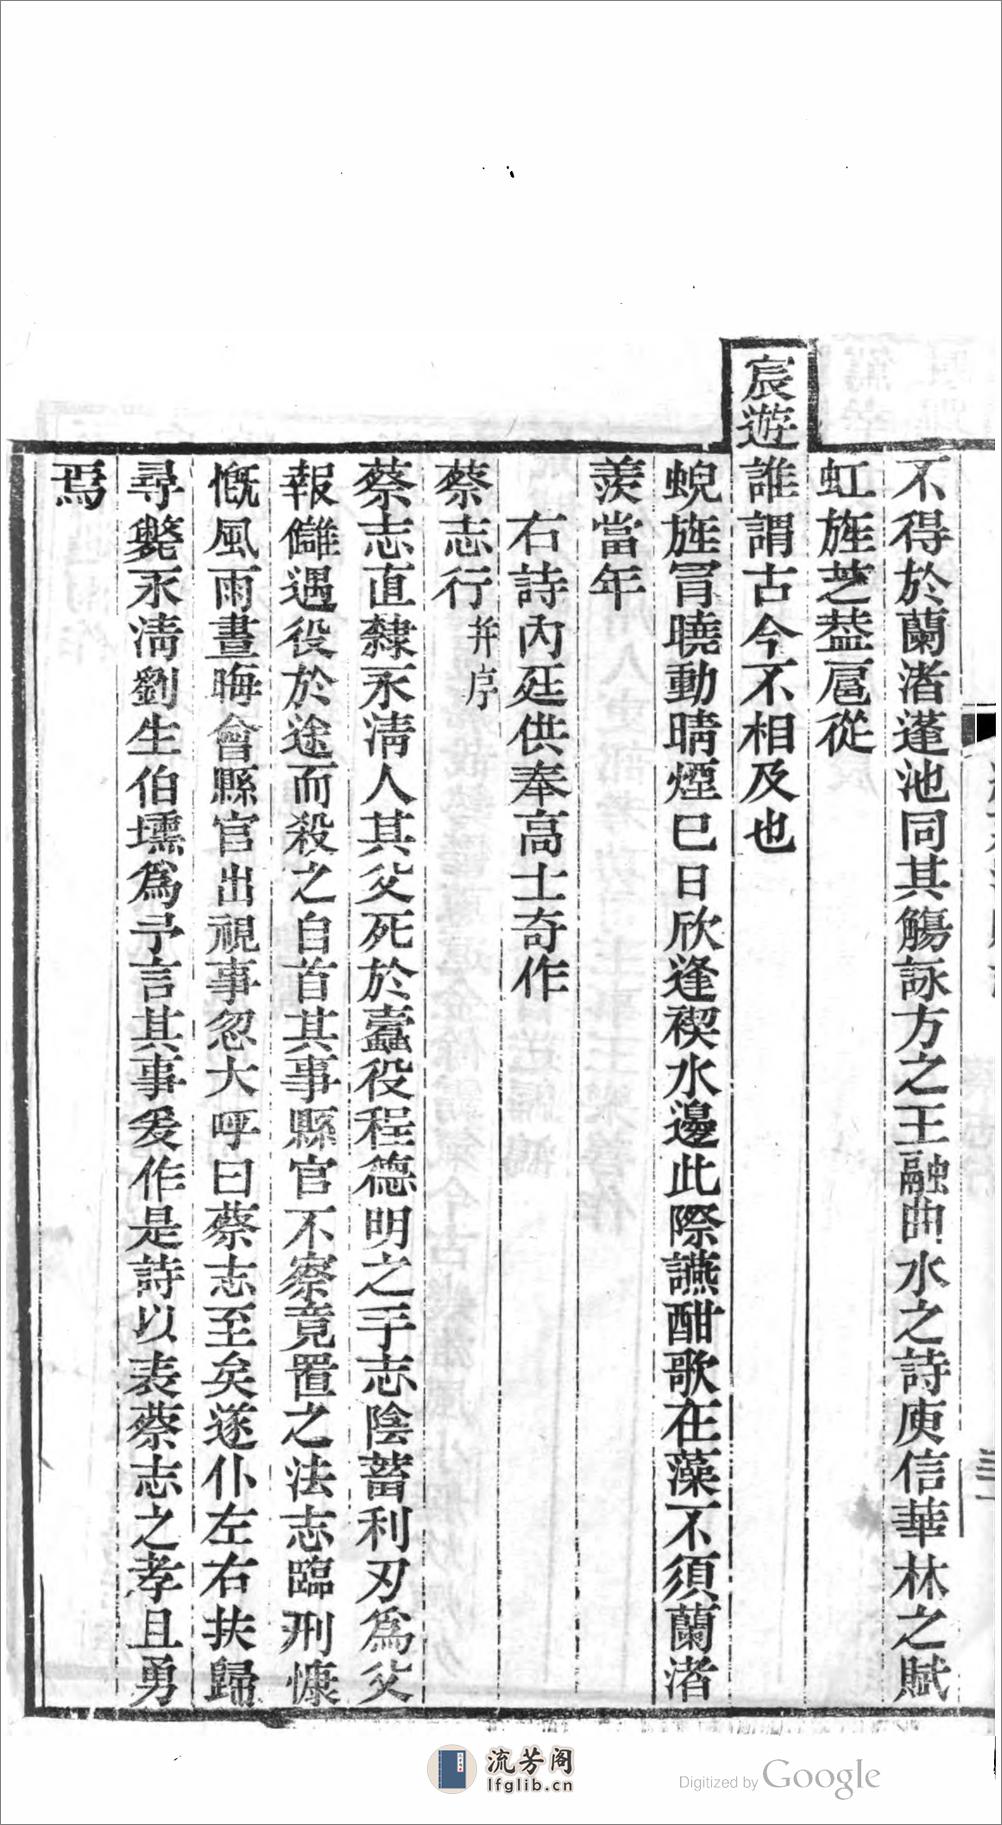 不得於蘭渚蓬池同其觴詠方之王融曲水之詩庾信華林之賦
虹旌芝葢扈從
宸遊誰謂古今不相及也
蜺旌冐曉動晴煙巳日欣逢禊水邊此際讌酣歌在藻不須蘭渚
羨當年
右詩內廷供奉高士奇作
蔡志行并序
蔡志直隸永淸人其父死於蠹役程德明之手志陰蓄利刃爲父
報讎遇役於途而殺之自首其事縣官不察竟置之法志臨刑慷
慨風雨晝晦會縣官出視事忽大呼曰蔡志至矣遂仆左右扶歸
尋斃永淸劉生伯壎爲予言其事爰作是詩以表蔡志之孝且勇
焉
流芳阁
lfglib.cn
Digitized by Google